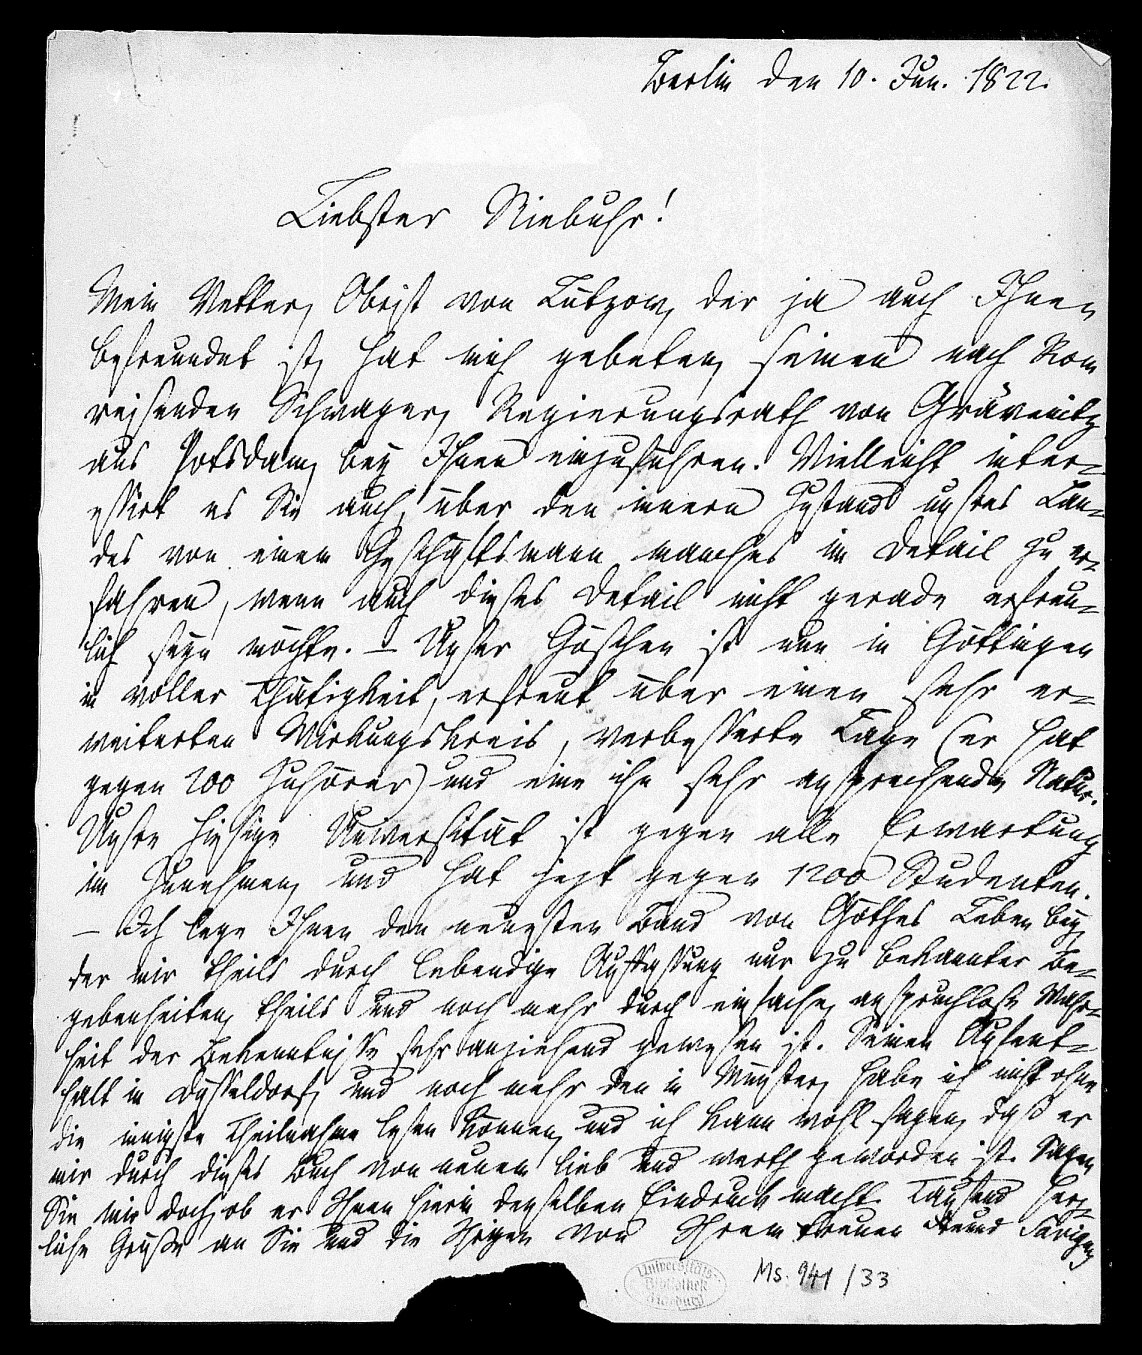 Berlin den 10. Jun. 1822.
Liebster Niebuhr!
Mein Vetter, Obrist von Lützow, der ja auch Ihnen
befreundet ist, hat mich gebeten, seinen nach Rom
reisenden Schwager, Regierungsrath von Grävenitz
aus Potsdam, bey Ihnen einzuführen. Vielleicht inter-
essirt es Sie auch, über den innern Zustand unsres Lan-
des von einem Geschäftsmann manches im Detail zu er-
fahren, wenn auch dieses Detail nicht gerade erfreu-
lich seyn möchte. – Unser Göschen ist nun in Göttingen
in voller Thätigkeit, erfreut über einen sehr er-
weiterten Wirkungskreis, verbesserte Lage (er hat
gegen 200 Zuhörer) und eine ihn sehr ansprechende Natur.
Unsre hiesige Universität ist gegen alle Erwartung
im Zunehmen, und hat jezt gegen 1200 Studenten.
– Ich lege Ihnen den neuesten Band von Göthes Leben bey,
der mir theils durch lebendige Auffassung nur zu bekannter Be-
gebenheiten, theils und noch mehr durch einfache, anspruchlose Wahr-
heit der Bekenntnisse sehr anziehend gewesen ist. Seinen Aufent-
halt in Düsseldorf, und noch mehr den in Münster, habe ich nicht ohne
die innigste Theilnahme lesen können, und ich kann wohl sagen, daß er
mir durch dieses Buch von neuem lieb und werth geworden ist. Sagen
Sie mir doch, ob er Ihnen hierin denselben Eindruck macht. Tausend herz-
liche Grüße an Sie und die Ihrigen von Ihrem treuen Freund Savigny
Universitäts-
Bibliothek
Marburg
Ms. 941/33